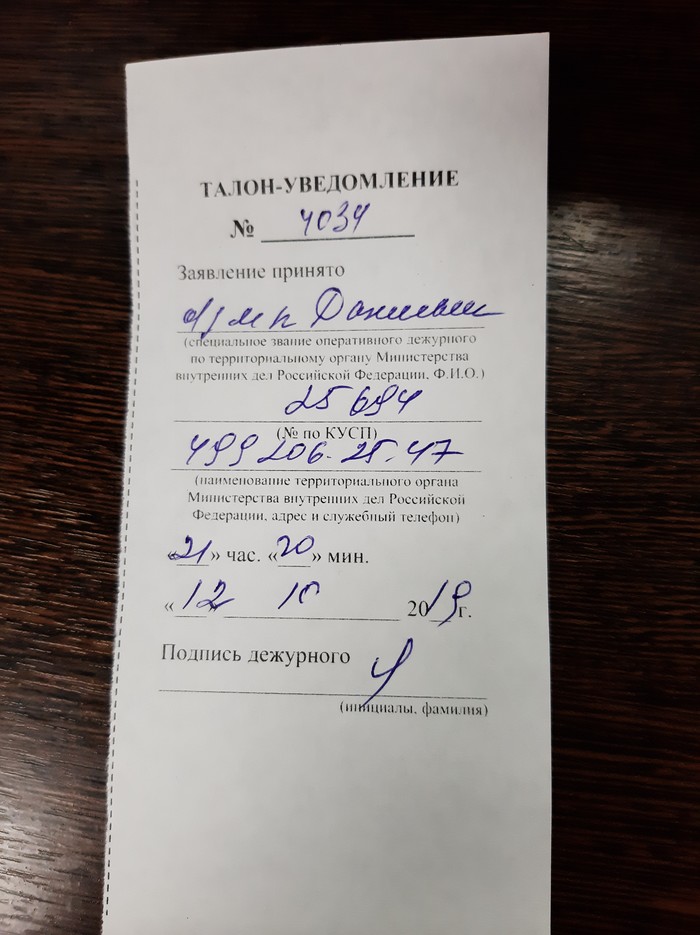 ТАЛОН-УВЕДОМЛЕНИЕ
№ 4034
Заявление принято
(специальное звание оперативного дежурного
по территориальному органу Министерства
внутренних дел Российской Федерации, Ф.И.О.)
25694
(№ по КУСП)
499 206-25-47
(наименование территориального органа
Министерства внутренних дел Российской
Федерации, адрес и служебный телефон)
«21» час. «20» мин.
«12» 10 2019г.
Подпись дежурного
(инициалы, фамилия)